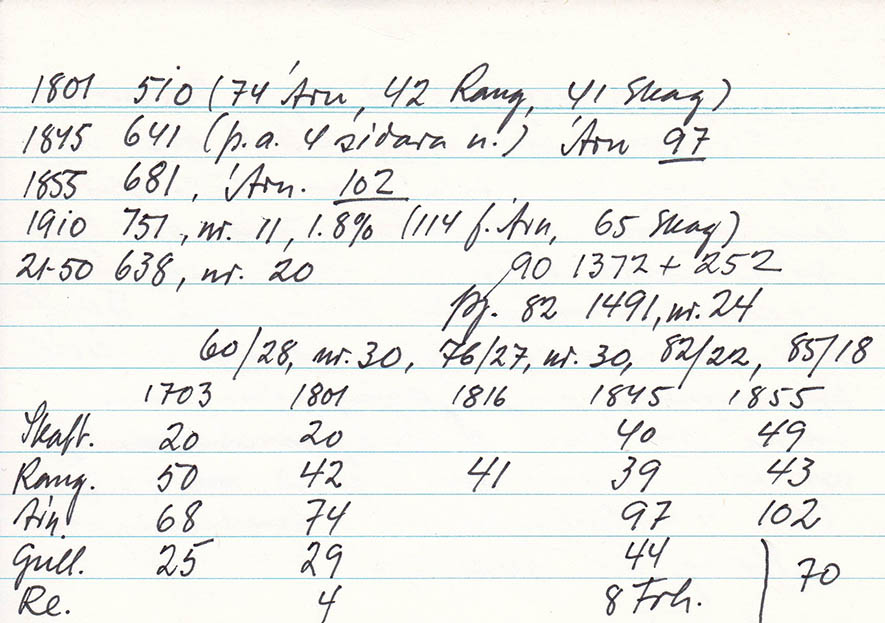 1801 510 (74 Árn, 42 Rang, 41 Skag)
1845 641 (p.a. 4 síðara n.) Árn 97
1855 681, Árn. 102
1910 751, nr. 11, 1.8% (114 f. Árn, 65 Skag)
21-50 638, nr. 20 90 1372 + 252
þj. 82 1491, nr. 24
60/28, nr. 30, 76/27, nr. 30, 82/22, 85/18
1703 1801 1816 1845 1855
Skaft. 20 20 40 49
Rang. 50 42 41 39 43
Árn. 68 74 97 102
Gull. 25 29 44 70
Re. 4 8 Frh.